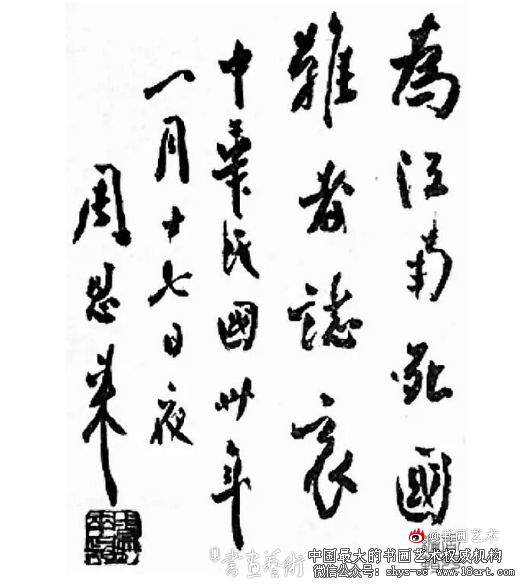 為江南死國
難者誌哀
中華民國卅年
一月十七日夜
周恩来
@书画艺术
書画藝術
中国最大的书画艺术权威机构
微信公众号：shys-cc www.18art.com